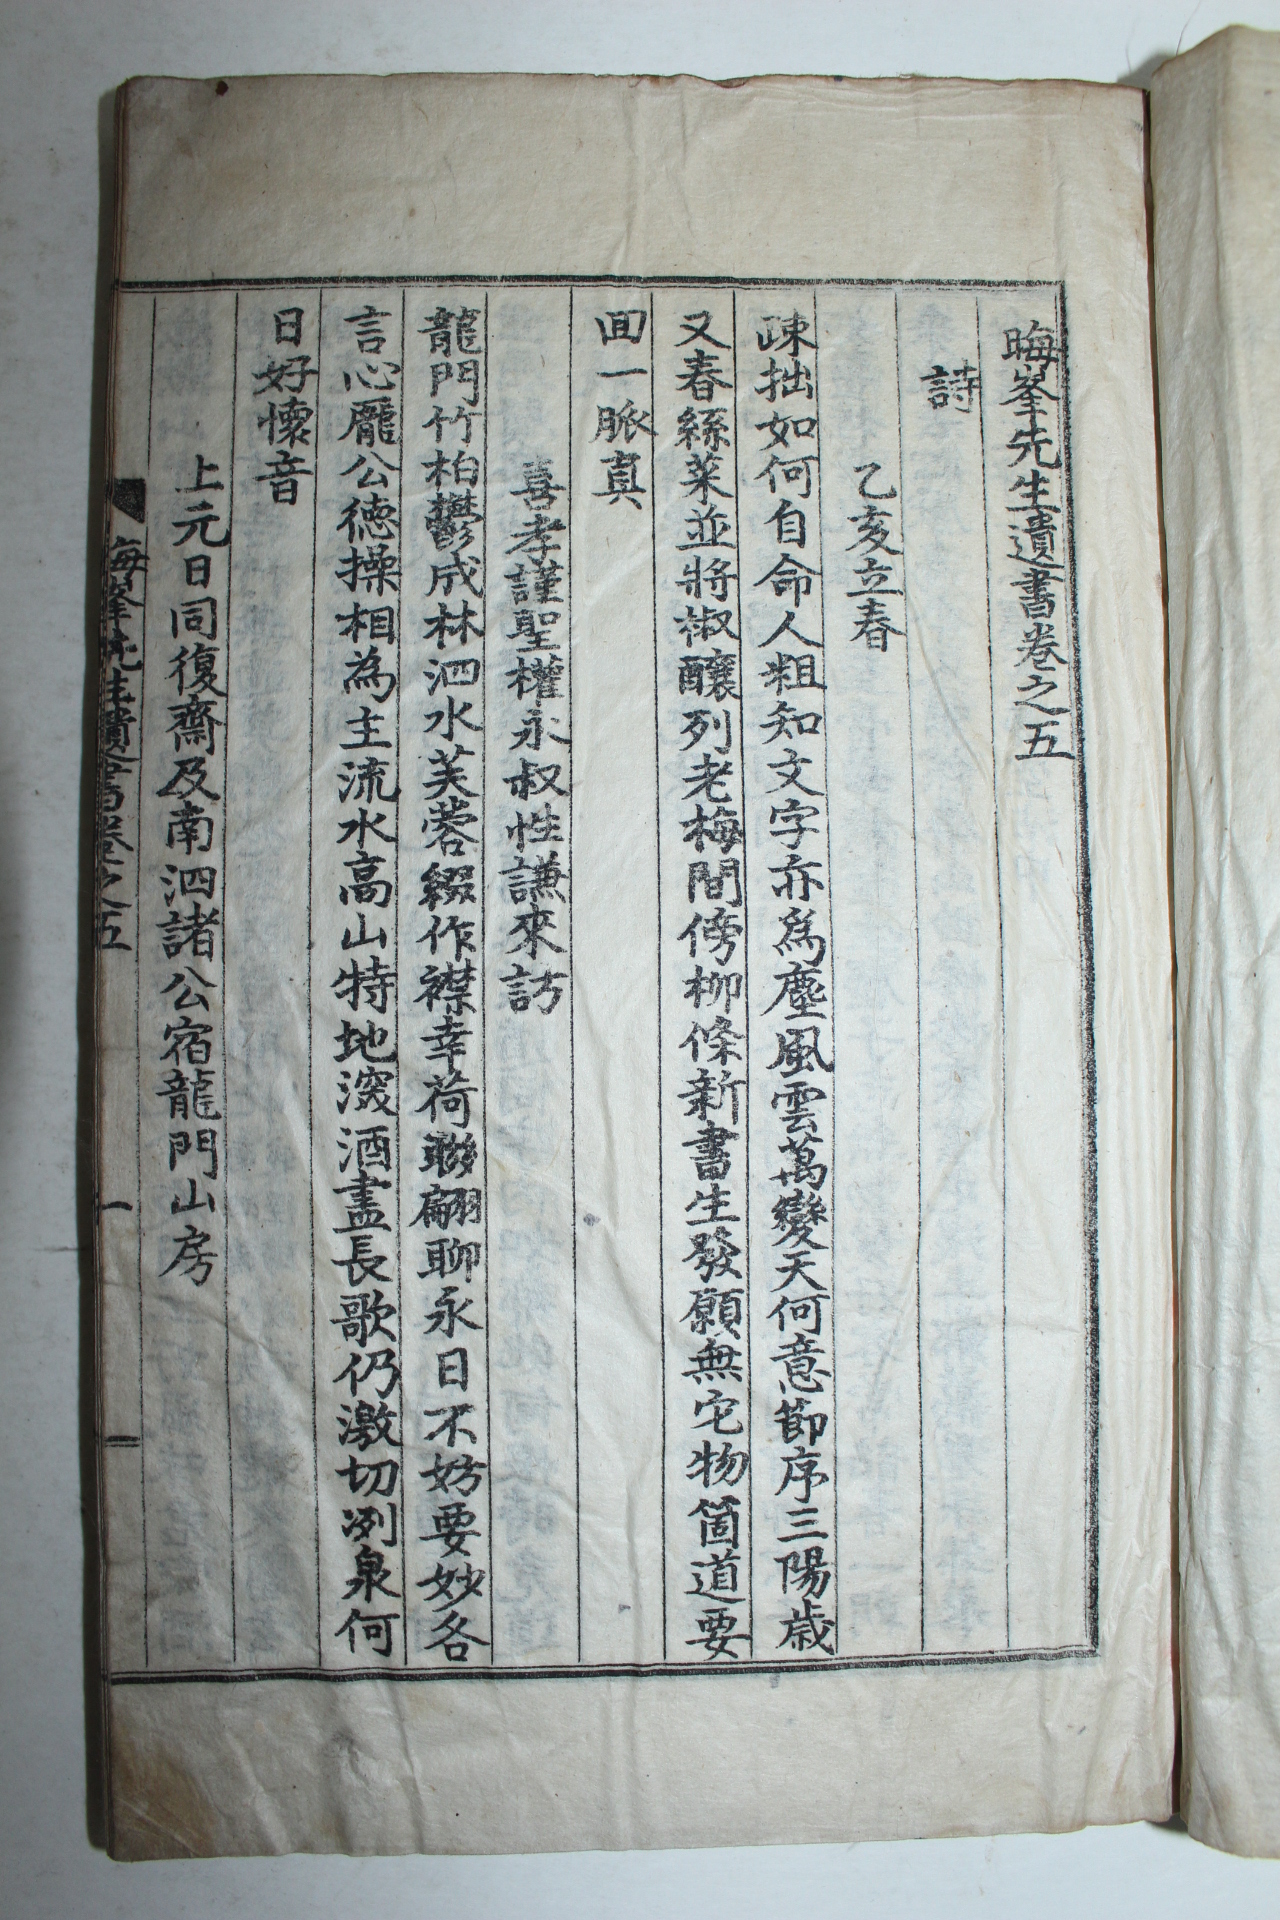 晦峯先生遺書卷之五
詩
乙亥立春
疎拙如何自命人粗知文字亦爲塵風雲萬變天何意節序三陽歲
又春絲菜並將椒釀列老梅間傍柳條新書生發願無宅物箇道要
回一脈真
喜孝謹聖權永叔性謙來訪
龍門竹柏鬱成林泗水芙蓉綴作襟幸荷聯翩聊永日不妨要妙各
言心龐公德操相為主流水高山特地深酒盡長歌仍激切冽泉何
日好懷音
上元日同復齋及南泗諸公宿龍門山房
晦峯先生遺書卷之五
一